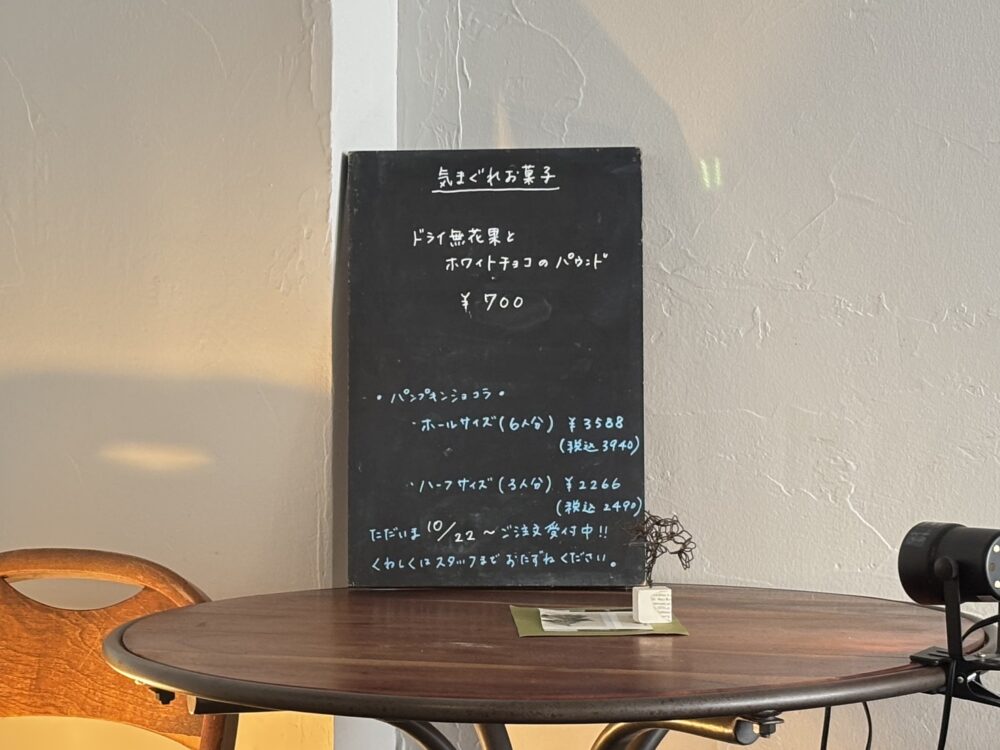 気まぐれお菓子
ドライ無花果と
ホワイトチョコのパウンド
¥700
・パンプキンショコラ・
・ホールサイズ(6人分) ¥3588
(税込3940)
・ハーフサイズ(3人分) ¥2266
(税込2490)
ただいま10/22~ご注文受付中!!
くわしくはスタッフまでおたずねください。